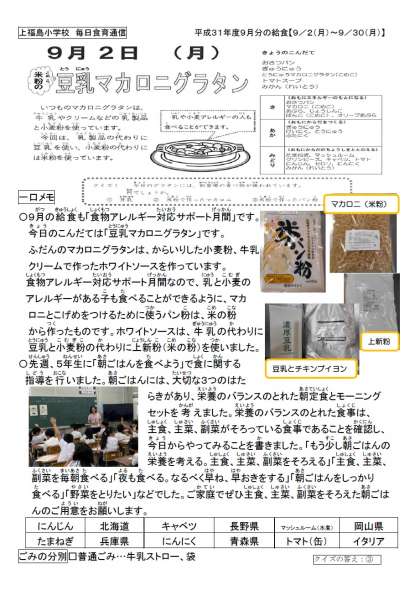 上福島小学校 毎日食育通信
平成31年度9月分の給食【9／2(月)～9／30(月)】
9月2日 （月）
米粉の
豆乳マカロニグラタン
きょうのこんだて
おさつパン
ぎゅうにゅう
とうにゅうマカロニグラタン(こめこ)
トマトスープ
みかん（れいとう）
いつものマカロニグラタンは、
牛乳やクリームなどの乳製品
と小麦粉を使っています。
今回は、乳製品の代わりに
豆乳を使い、小麦粉の代わりに
は米粉を使っています。
乳や小麦アレルギーの人も
食べることができます。
一口メモ
○9月の給食も「食物アレルギー対応サポート月間」です。
今日のこんだては「豆乳マカロニグラタン」です。
ふだんのマカロニグラタンは、からいりした小麦粉、牛乳
クリームで作ったホワイトソースを作っています。
食物アレルギー対応サポート月間なので、乳と小麦の
アレルギーがある子も食べることができるように、マカ
ロニとこげめをつけるために使うパン粉は、米の粉
から作ったものです。ホワイトソースは、牛乳の代わりに
豆乳と小麦粉の代わりに上新粉(米の粉)を使いました。
マカロニ（米粉）
米パン粉
濃厚豆乳
上新粉
豆乳とチキンブイヨン
○先週、5年生に「朝ごはんを食べよう」で食に関する
指導を行いました。朝ごはんには、大切な3つのはた
らきがあり、栄養のバランスのとれた朝定食とモーニング
セットを考えました。栄養のバランスのとれた食事は、
主食、主菜、副菜がそろっている食事であることを確認し、
今日からやってみることを書きました。「もう少し朝ごはんの
栄養を考える。主食、主菜、副菜をそろえる」「主食、主菜、
副菜を毎朝食べる」「夜も食べる。なるべく早ね、早おきをする」「朝ごはんをしっかり
食べる」「野菜をとりたい」などでした。ご家庭でぜひ主食、主菜、副菜をそろえた朝ごは
んのご用意をお願いします。
にんじん 北海道 キャベツ 長野県 マッシュルーム(水煮) 岡山県
たまねぎ 兵庫県 にんにく 青森県 トマト(缶) イタリア
ごみの分別 □普通ごみ…牛乳ストロー、袋
クイズの答え：③